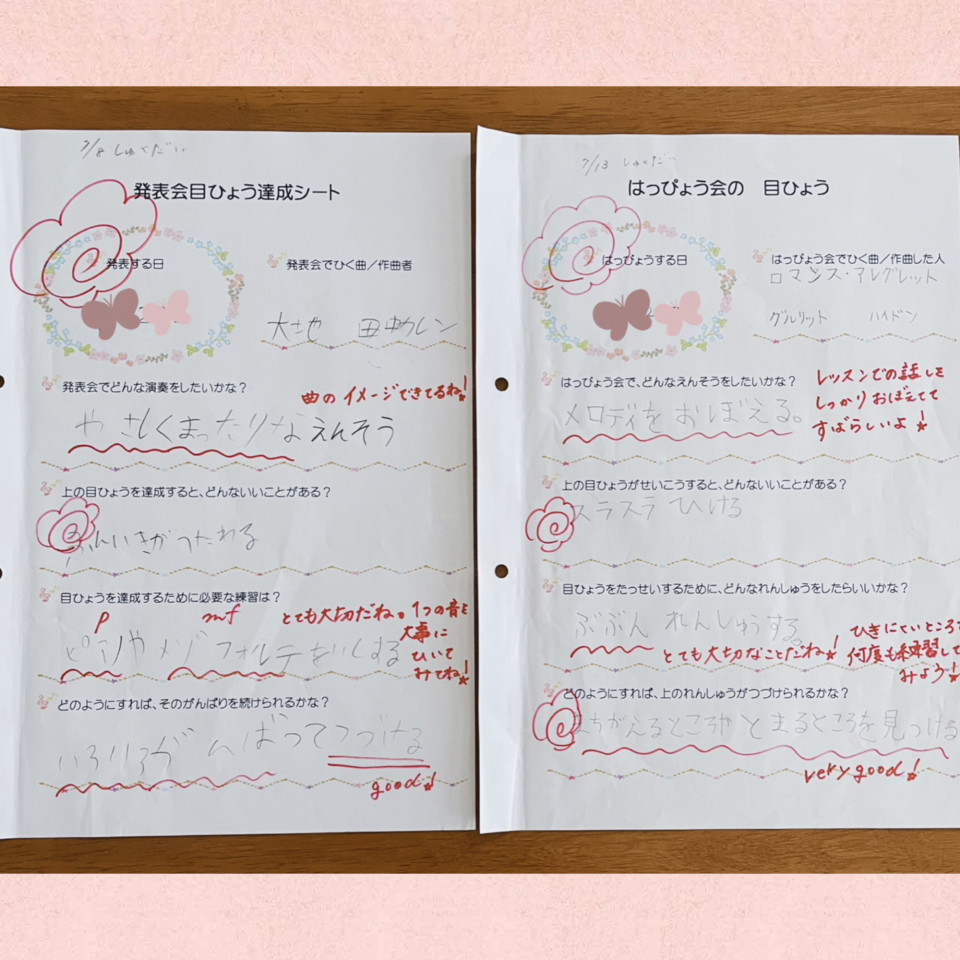 7/8 しゅくだい
発表会目ひょう達成シート
発表する日
発表会でひく曲／作曲者
大地 田中カレン
発表会でどんな演奏をしたいかな？
曲のイメージできてるね!
やさしくまったりなえんそう
上の目ひょうを達成すると、どんないいことがある？
ふんいきがつたわる
目ひょうを達成するために必要な練習は？
p mf
とても大切だね。1つの音を
大事に
ひいて
みてね!
ピアノやメゾフォルテをいしきする
どのようにすれば、そのがんばりを続けられるかな？
いろいろがんばってつづける
good!
7/13 しゅくだい
はっぴょう会の 目ひょう
はっぴょうする日
はっぴょう会でひく曲／作曲した人
ロマンス・アレグレット
グルリット ハイドン
はっぴょう会で、どんなえんそうをしたいかな？
レッスンでの話しを
しっかりおぼえてて
すばらしいよ!
メロディをおぼえる。
上の目ひょうがせいこうすると、どんないいことがある？
スラスラひける
目ひょうをたっせいするために、どんなれんしゅうをしたらいいかな？
ぶぶんれんしゅうする。
とても大切なことだね!
ひきにくいところを
何度も練習して
みよう!
どのようにすれば、上のれんしゅうがつづけられるかな？
まちがえるところやとまるところを見つける
very good!